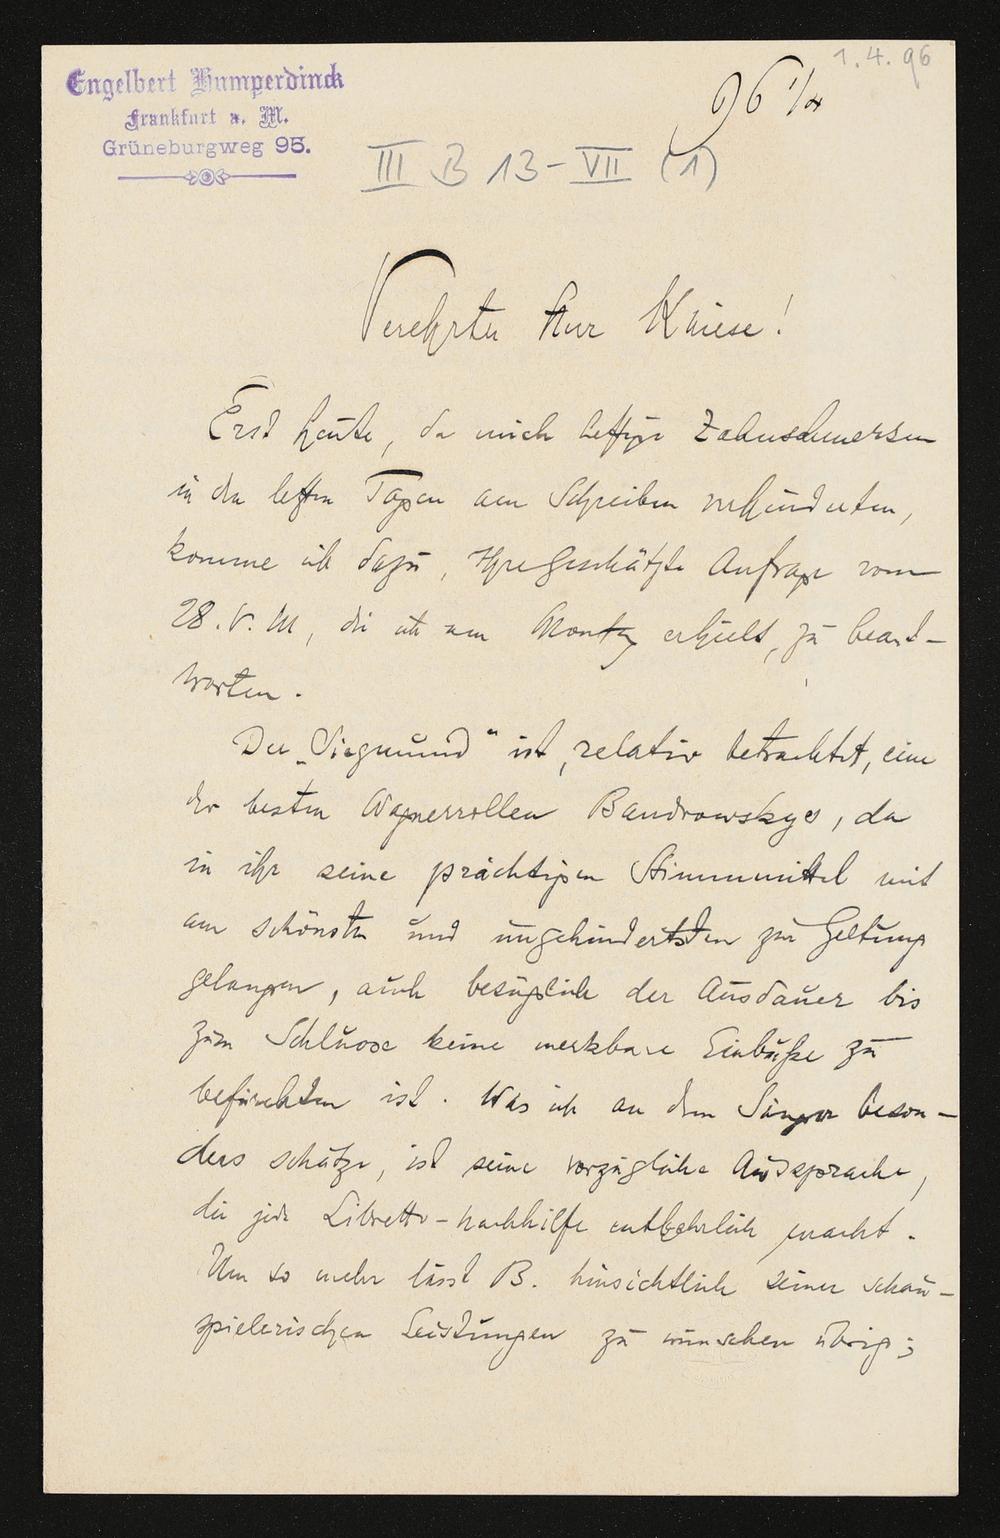 1. 4. 96
Engelbert Humperdinck
Frankfurt a. M.
Grüneburgweg 95.
96 1/4
III B 13-VII (1)
Verehrter Herr Kniese!
Erst heute, da mich heftige Zahnschmerzen
in den letzten Tagen am Schreiben verhinderten,
komme ich dazu, Ihre geschätzte Anfrage vom
28. v. M, die ich am Montag erhielt, zu beant-
worten.
Der „Siegmund" ist, relativ betrachtet, eine
der besten Wagnerrollen Bandrowskys, da
in ihr seine prächtigen Stimmmittel mit
am schönsten und ungehindertsten zur Geltung
gelangen, auch bezüglich der Ausdauer bis
zum Schlusse keine merkbare Einbuße zu
befürchten ist. Was ich an dem Sänger beson-
ders schätze, ist seine vorzügliche Aussprache,
die jede Libretto-Nachhilfe entbehrlich macht.
Um so mehr lässt B. hinsichtlich seiner schau-
spielerischen Leistungen zu wünschen übrig;